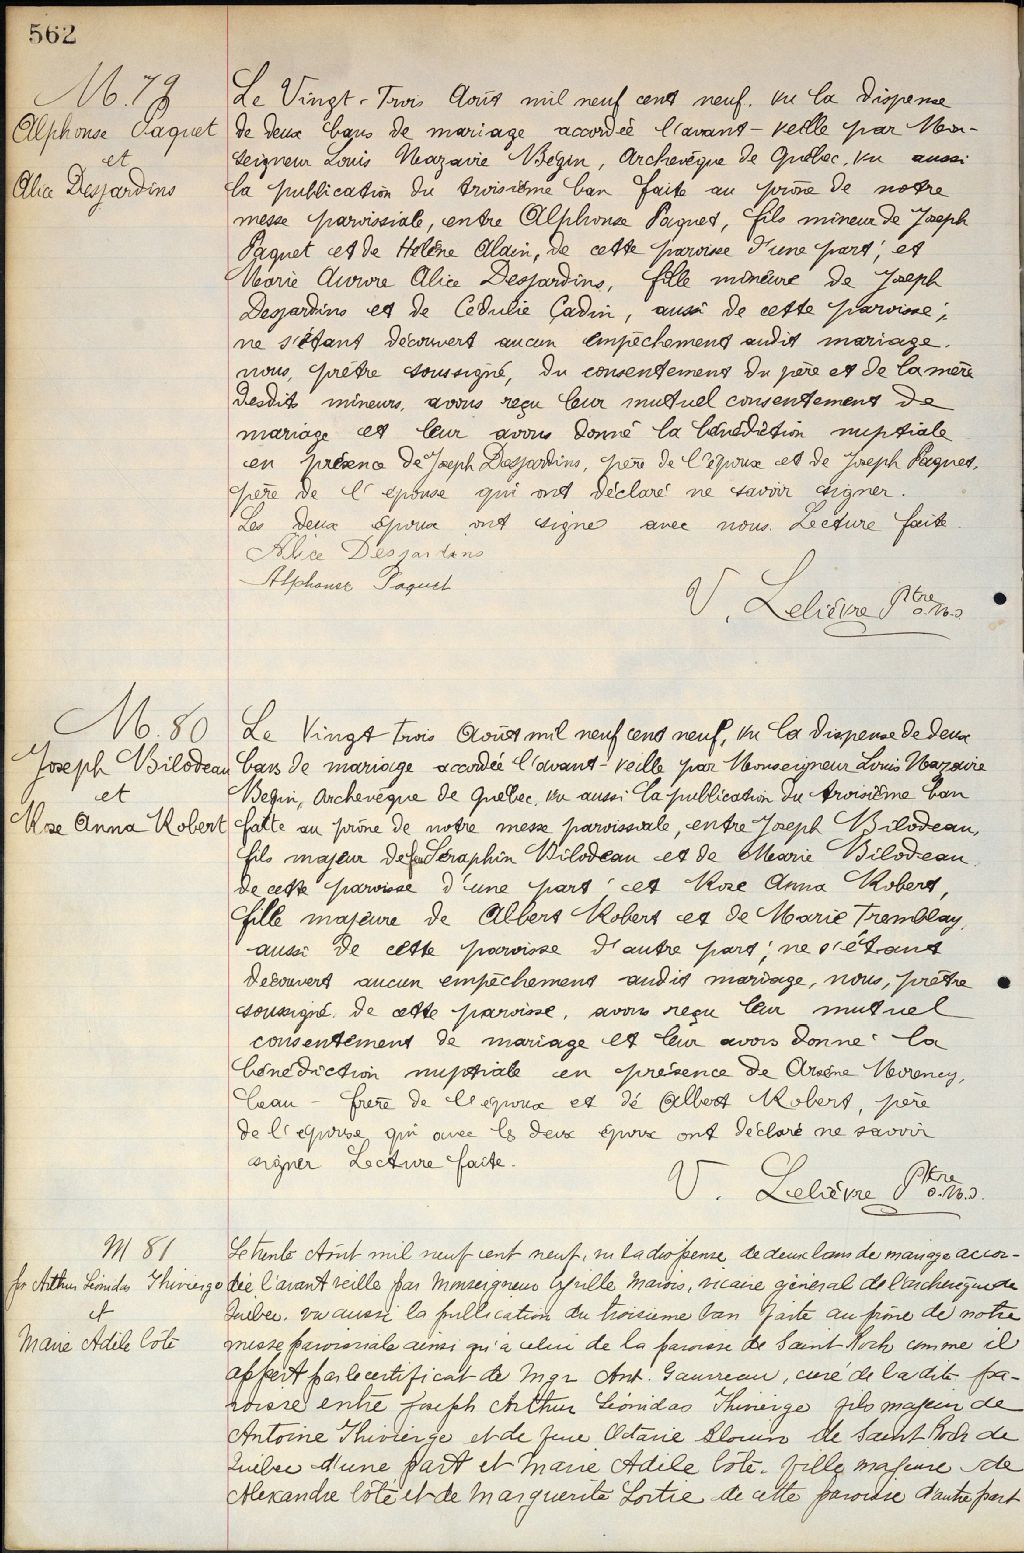 562
M. 79
Alphonse Paquet
et
Alice Desjardins
Le Vingt-Trois Août mil neuf cent neuf, vu la dispense
de deux bans de mariage accordée l'avant-veille par Mon-
seigneur Louis Nazaire Bégin, Archevêque de Québec, vu aussi
la publication du troisième ban faite au prône de notre
messe paroissiale, entre Alphonse Paquet, fils mineur de Joseph
Paquet et de Hélène Alain, de cette paroisse d'une part; et
Marie Aurore Alice Desjardins, fille mineure de Joseph
Desjardins et de Cédulie Cadin, aussi de cette paroisse;
ne s'étant découvert aucun empêchement audit mariage.
nous, prêtre soussigné, du consentement du père et de la mère
desdits mineurs, avons reçu leur mutuel consentement de
mariage et leur avons donné la bénédiction nuptiale
en présence de Joseph Desjardins, père de l'époux et de Joseph Paquet,
père de l'épouse qui ont déclaré ne savoir signer.
Les deux époux ont signé avec nous. Lecture faite.
Alice Desjardins
Alphonse Paquet
V. Lelièvre Ptre
o.m.i.
M. 80
Joseph Bilodeau
et
Rose Anna Robert
Le Vingt Trois Août mil neuf cent neuf, vu la dispense de deux
bans de mariage accordée l'avant-veille par Monseigneur Louis Nazaire
Bégin, Archevêque de Québec, vu aussi la publication du troisième ban
faite au prône de notre messe paroissiale, entre Joseph Bilodeau,
fils majeur de feu Séraphin Bilodeau et de Marie Bilodeau
de cette paroisse d'une part; et Rose Anna Robert,
fille majeure de Albert Robert et de Marie Tremblay,
aussi de cette paroisse d'autre part; ne s'étant
découvert aucun empêchement audit mariage, nous, prêtre
soussigné, de cette paroisse, avons reçu leur mutuel
consentement de mariage et leur avons donné la
bénédiction nuptiale en présence de Arsène Morency,
beau-frère de l'époux et de Albert Robert, père
de l'épouse qui avec les deux époux ont déclaré ne savoir
signer Lecture faite.
V. Lelièvre Ptre
o.m.i.
M 81
Jos Arthur Léonidas Thivierge
et
Marie Adèle Côté
Le trente Août mil neuf cent neuf, vu la dispense de deux bans de mariage accor-
dée l'avant veille par Monseigneur Cyrille Marois, vicaire général de l'archevêque de
Québec, vu aussi la publication du troisième ban faite au prône de notre
messe paroissiale ainsi qu'à celui de la paroisse de Saint Roch comme il
appert par le certificat de Mgr Ant. Gauvreau, curé de la dite pa-
roisse entre Joseph Arthur Léonidas Thivierge fils majeur de
Antoine Thivierge et de feue Octavie Blouin de Saint Roch de
Québec d'une part et Marie Adèle Côté, fille majeure de
Alexandre Côté et de Marguerite Lortie de cette paroisse d'autre part